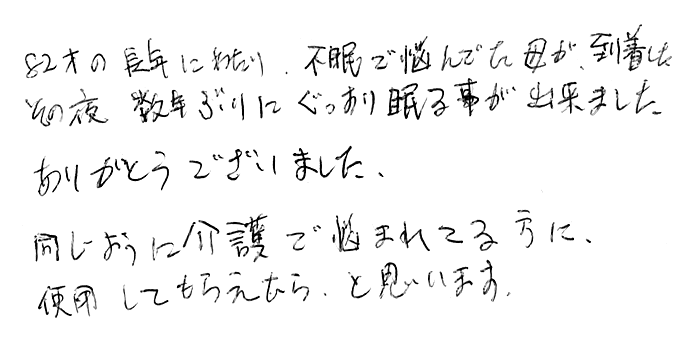 82才の長年にわたり、不眠で悩んでた母が、到着した
その夜 数年ぶりにぐっすり眠る事が出来ました
ありがとうございました、
同じように介護で悩まれてる方に、
使用してもらえたら、と思います。